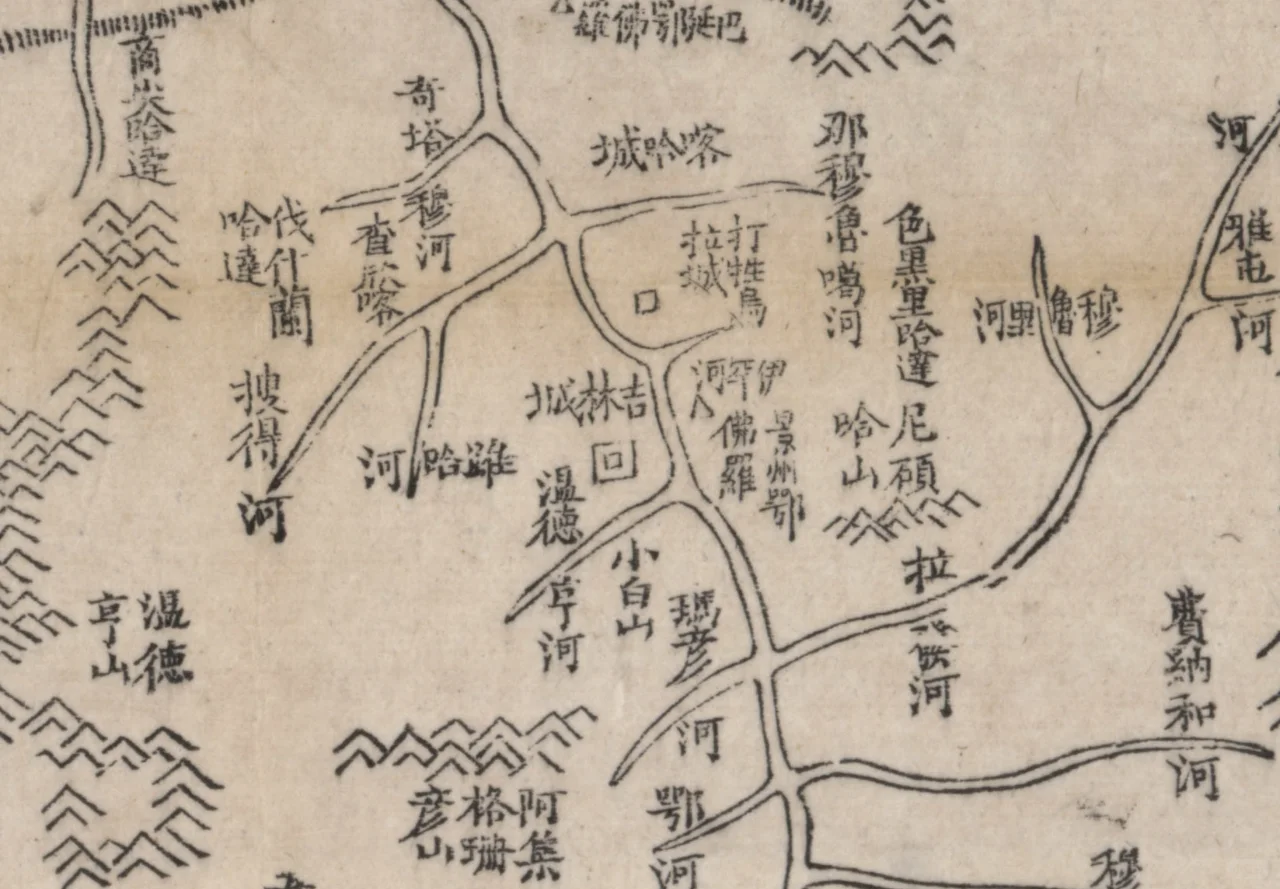 巴延鄂佛羅
商尖哈達
奇塔穆河
喀哈城
那穆魯噶河
河
打牲烏拉城
色黑里哈達
雅屯河
伐什蘭哈達
查喀
穆魯里河
搜得河
雖哈河
吉林城
伊罕河
景州鄂佛羅
尼碩哈山
溫德亨河
小白山
拉
河
瑪彥河
溫德亨山
費納和河
阿集格珊彥山
鄂河
穆